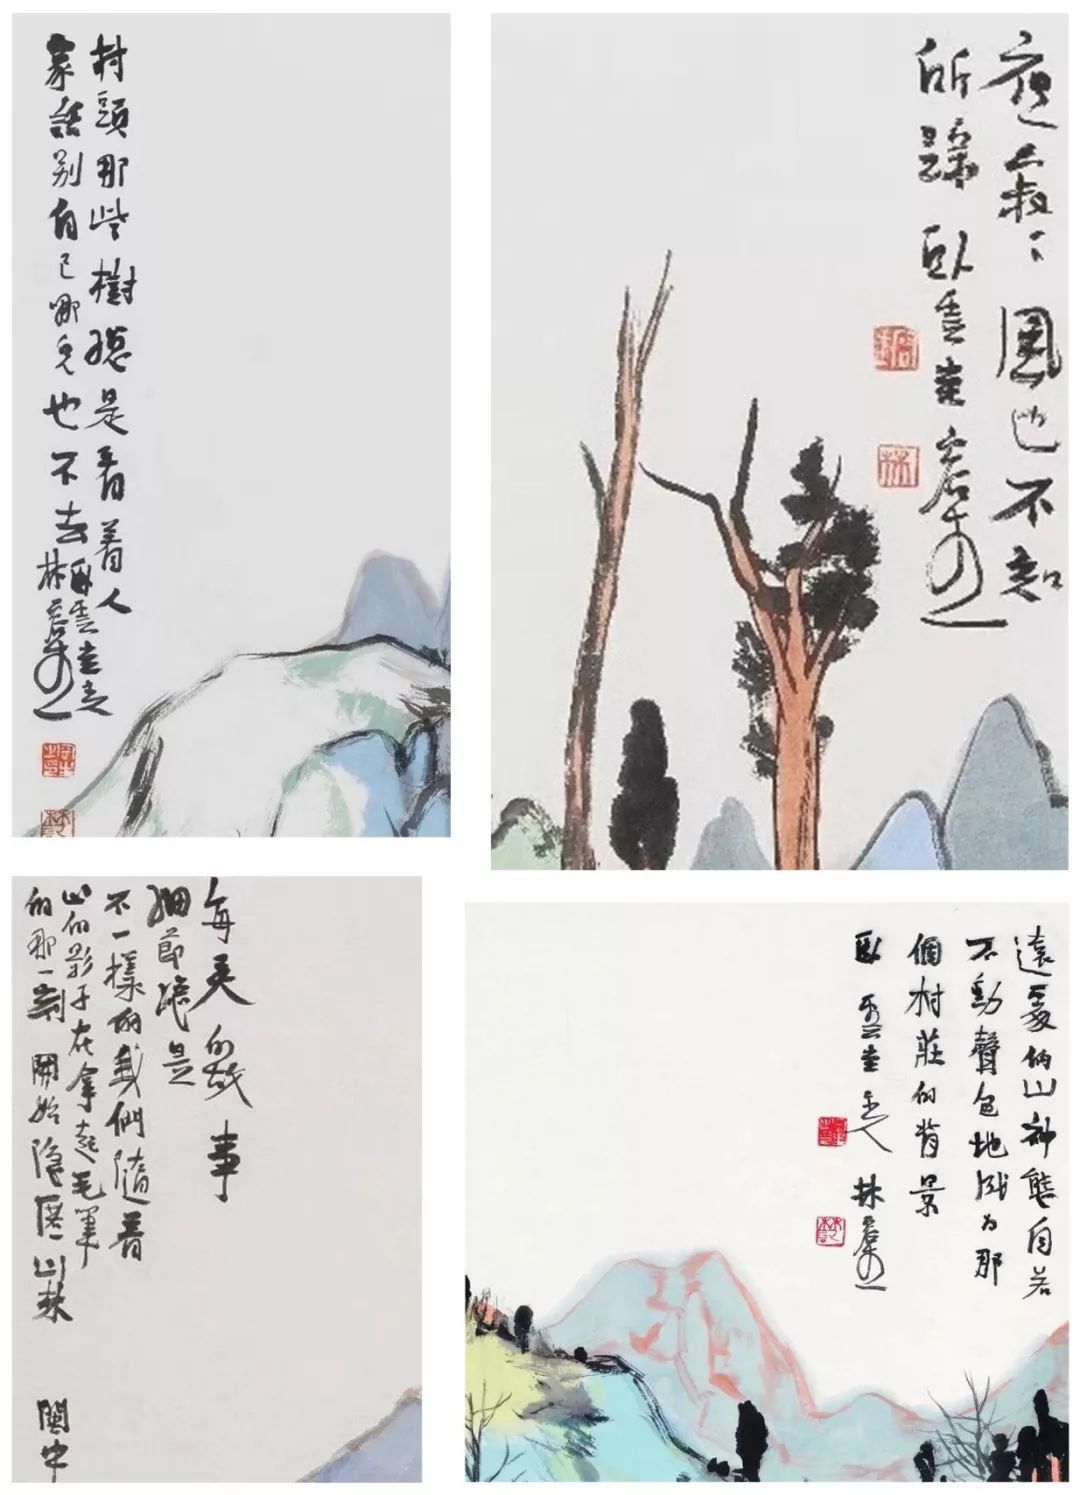 村頭那些樹總是看着人
家話别自己哪兒也不去
臥雲堂主
林容生
夜
風也不知
所蹤 臥雲堂 容生
每天的故事
細節總是
不一樣的我們隨着
山的影子在拿起毛筆
的那一刻 開始隐居山林
閩中
遠處的山神態自若
不動聲色地成為那
個村莊的背景
臥雲堂主人 林容生